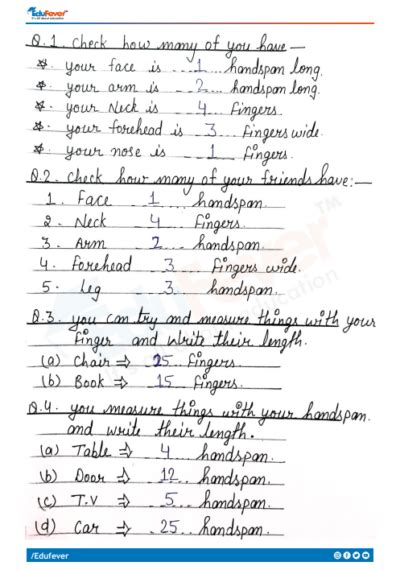 EduFever
Q.1. Check how many of you have —
* your face is ...1... handspan long.
* your arm is ...2... handspan long.
* your Neck is ...4... Fingers.
* your forehead is ...3... Fingers wide.
* your nose is ...1... Fingers.
Q.2. Check how many of your friends have:—
1. Face ...1... handspan.
2. Neck ...4... Fingers.
3. Arm ...2... handspan.
4. Forehead ...3... Fingers wide.
5. Leg ...3... handspan.
Q.3. you can try and measure things with your
finger and write their length.
(a) Chair ⇒ 25 Fingers.
(b) Book ⇒ 15 Fingers.
Q.4. you measure things with your handspan.
and write their length.
(a) Table ⇒ 4 handspan.
(b) Door ⇒ 12 handspan.
(c) T.V ⇒ 5 handspan.
(d) Car ⇒ 25 handspan.
/Edufever